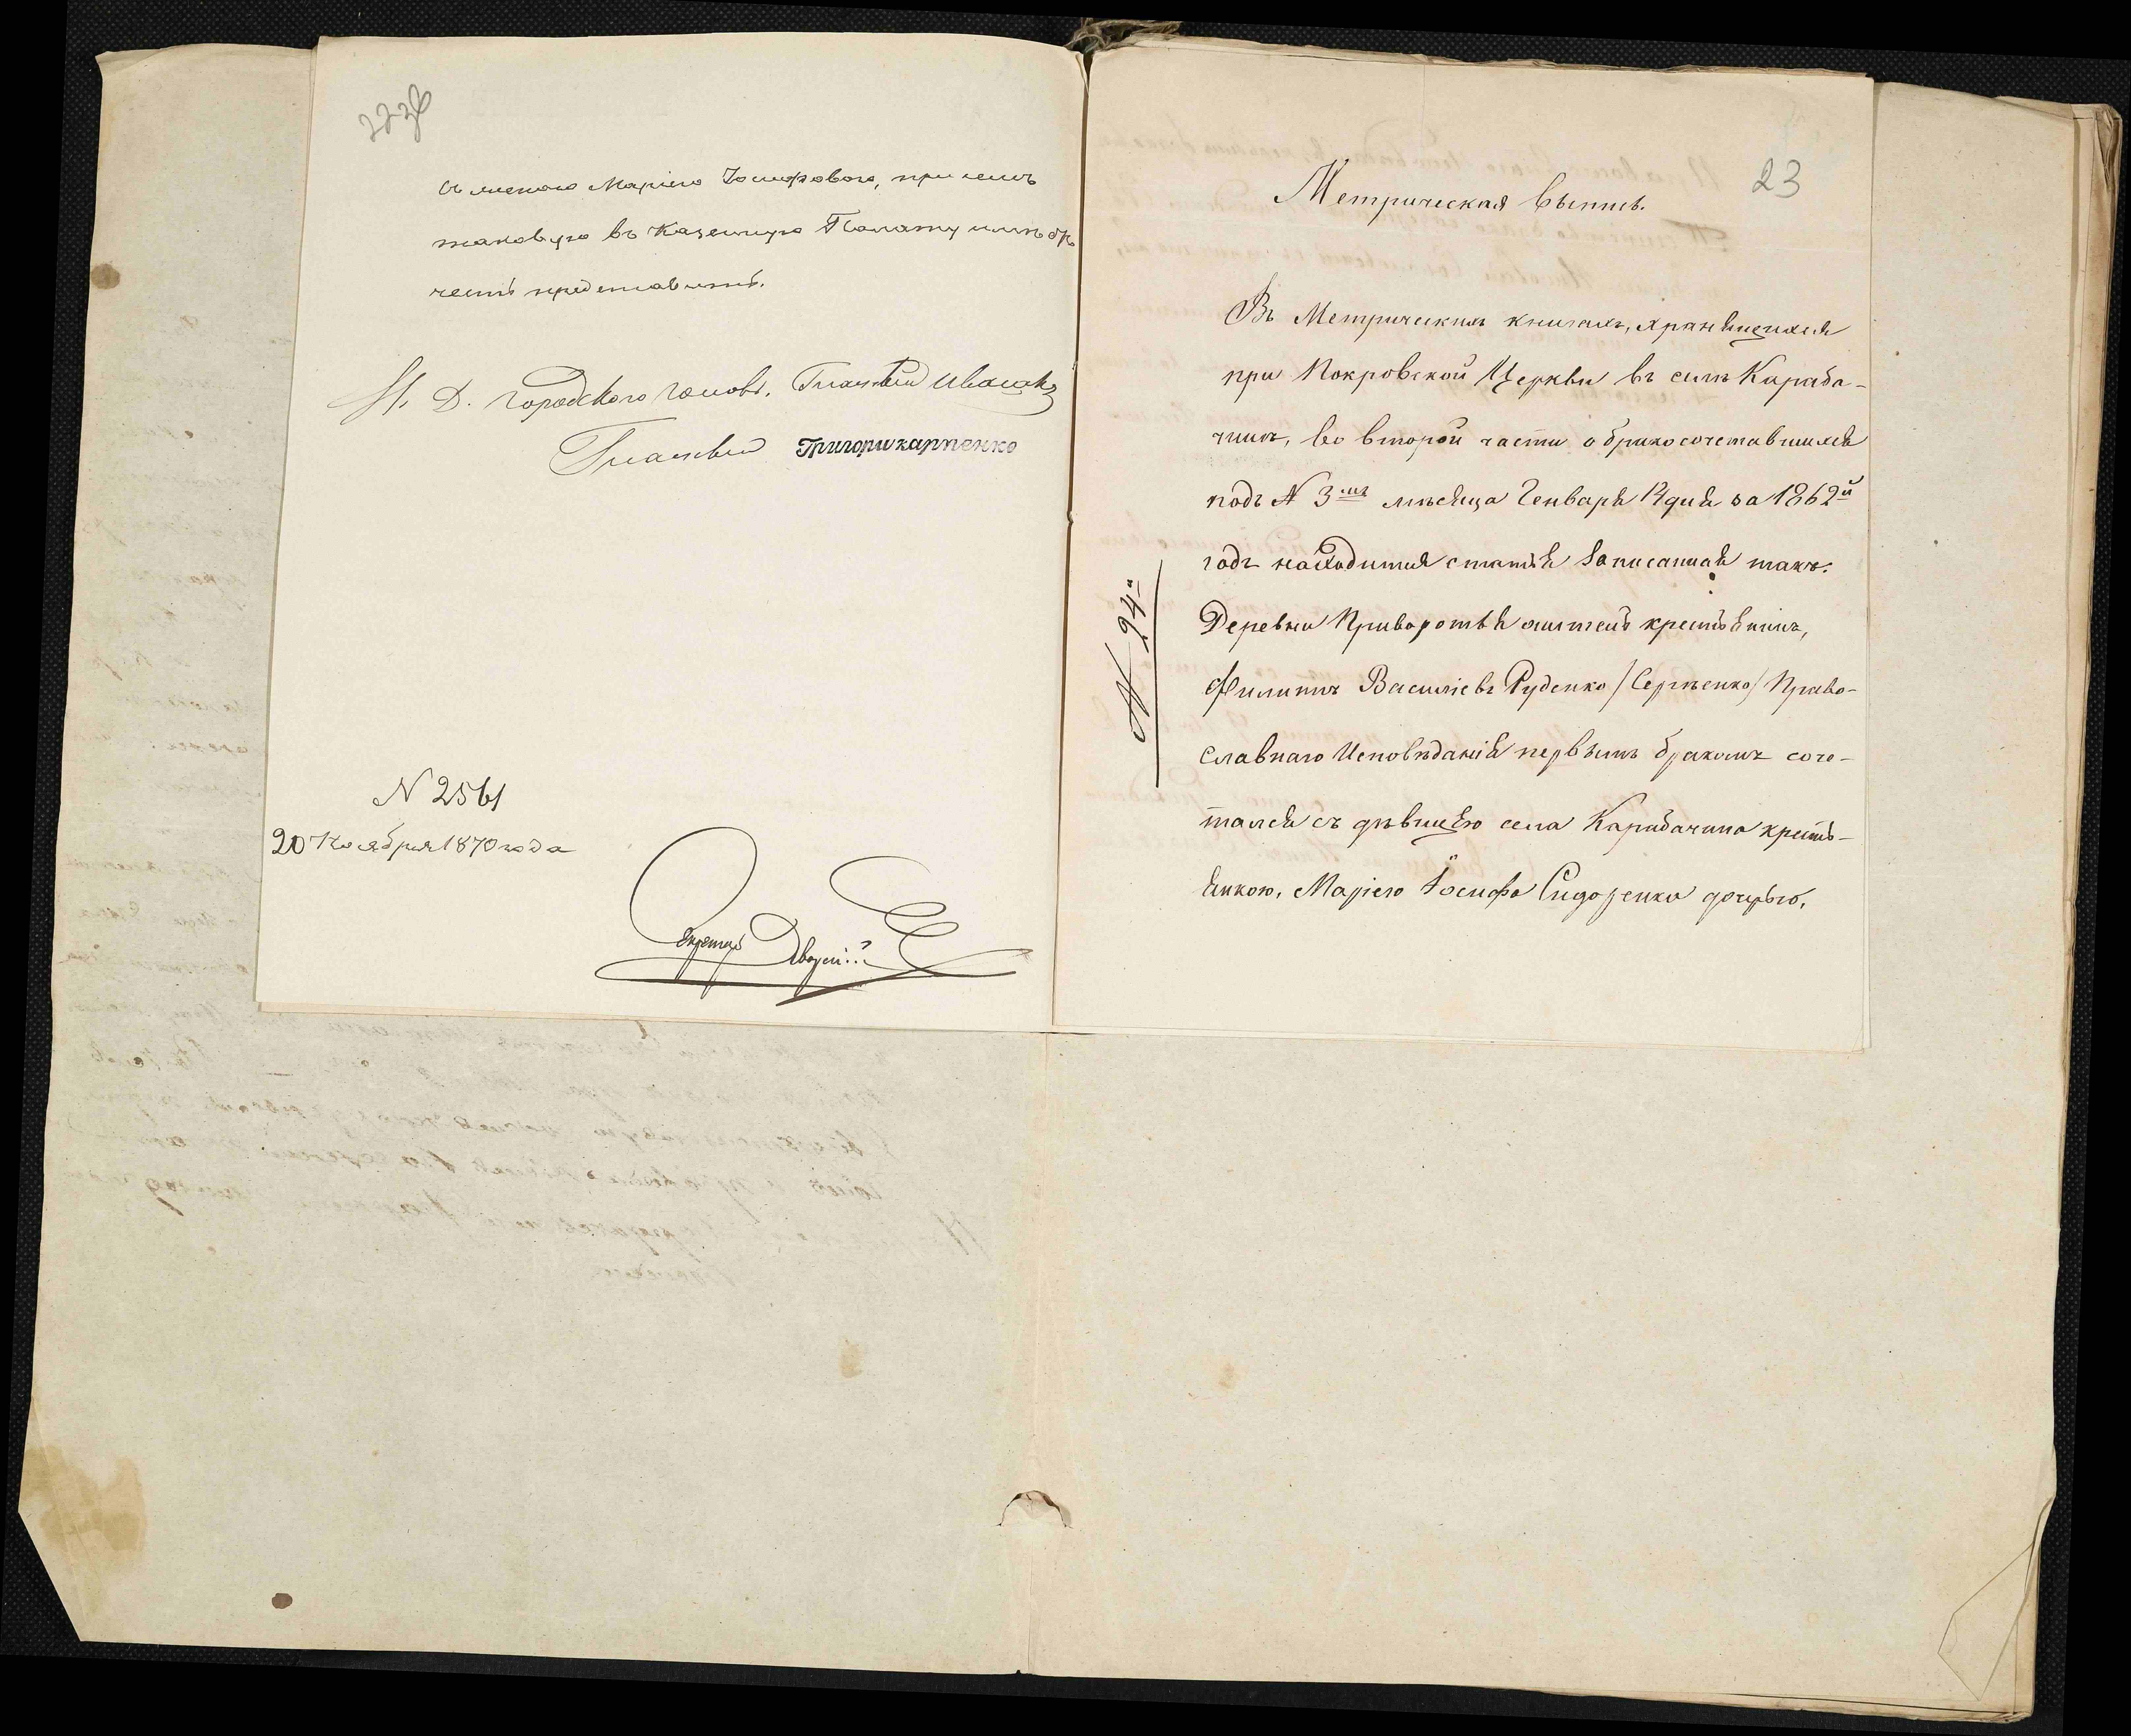 съ женою Маріею Іосифовою, при чемъ
таковую въ Казенную Палату имѣетъ
честь представить.
И. Д. Городского Головы, Гласный Ивашк
Гласный Григори карпенко
N 2561
20 Ноября 1870 года
Секретарь
23
Метрическая выпись.
Въ Метрическихъ книгахъ, хранящихся
при Покровской Церкви въ селѣ Караба-
чинѣ, во второй части о бракосочетавшихся
подъ N 3мъ мѣсяца Генваря 14 дня за 1862й
годъ находится статья записанная такъ:
Деревни Привороття жител крестьянинъ,
Филиппъ Василіевъ Руденко /Сергѣенко/ Право-
славнаго Исповѣданія первымъ бракомъ соче-
тался съ дѣвицею села Карабачина кресть-
янкою, Маріею Іосифа Сидоренка дочерью,
N 24й